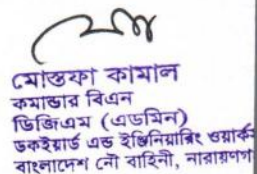 মোস্তফা কামাল
কমান্ডার বিএন
ডিজিএম (এডমিন)
ডকইয়ার্ড এন্ড ইঞ্জিনিয়ারিং ওয়ার্কস
বাংলাদেশ নৌ বাহিনী, নারায়ণগ